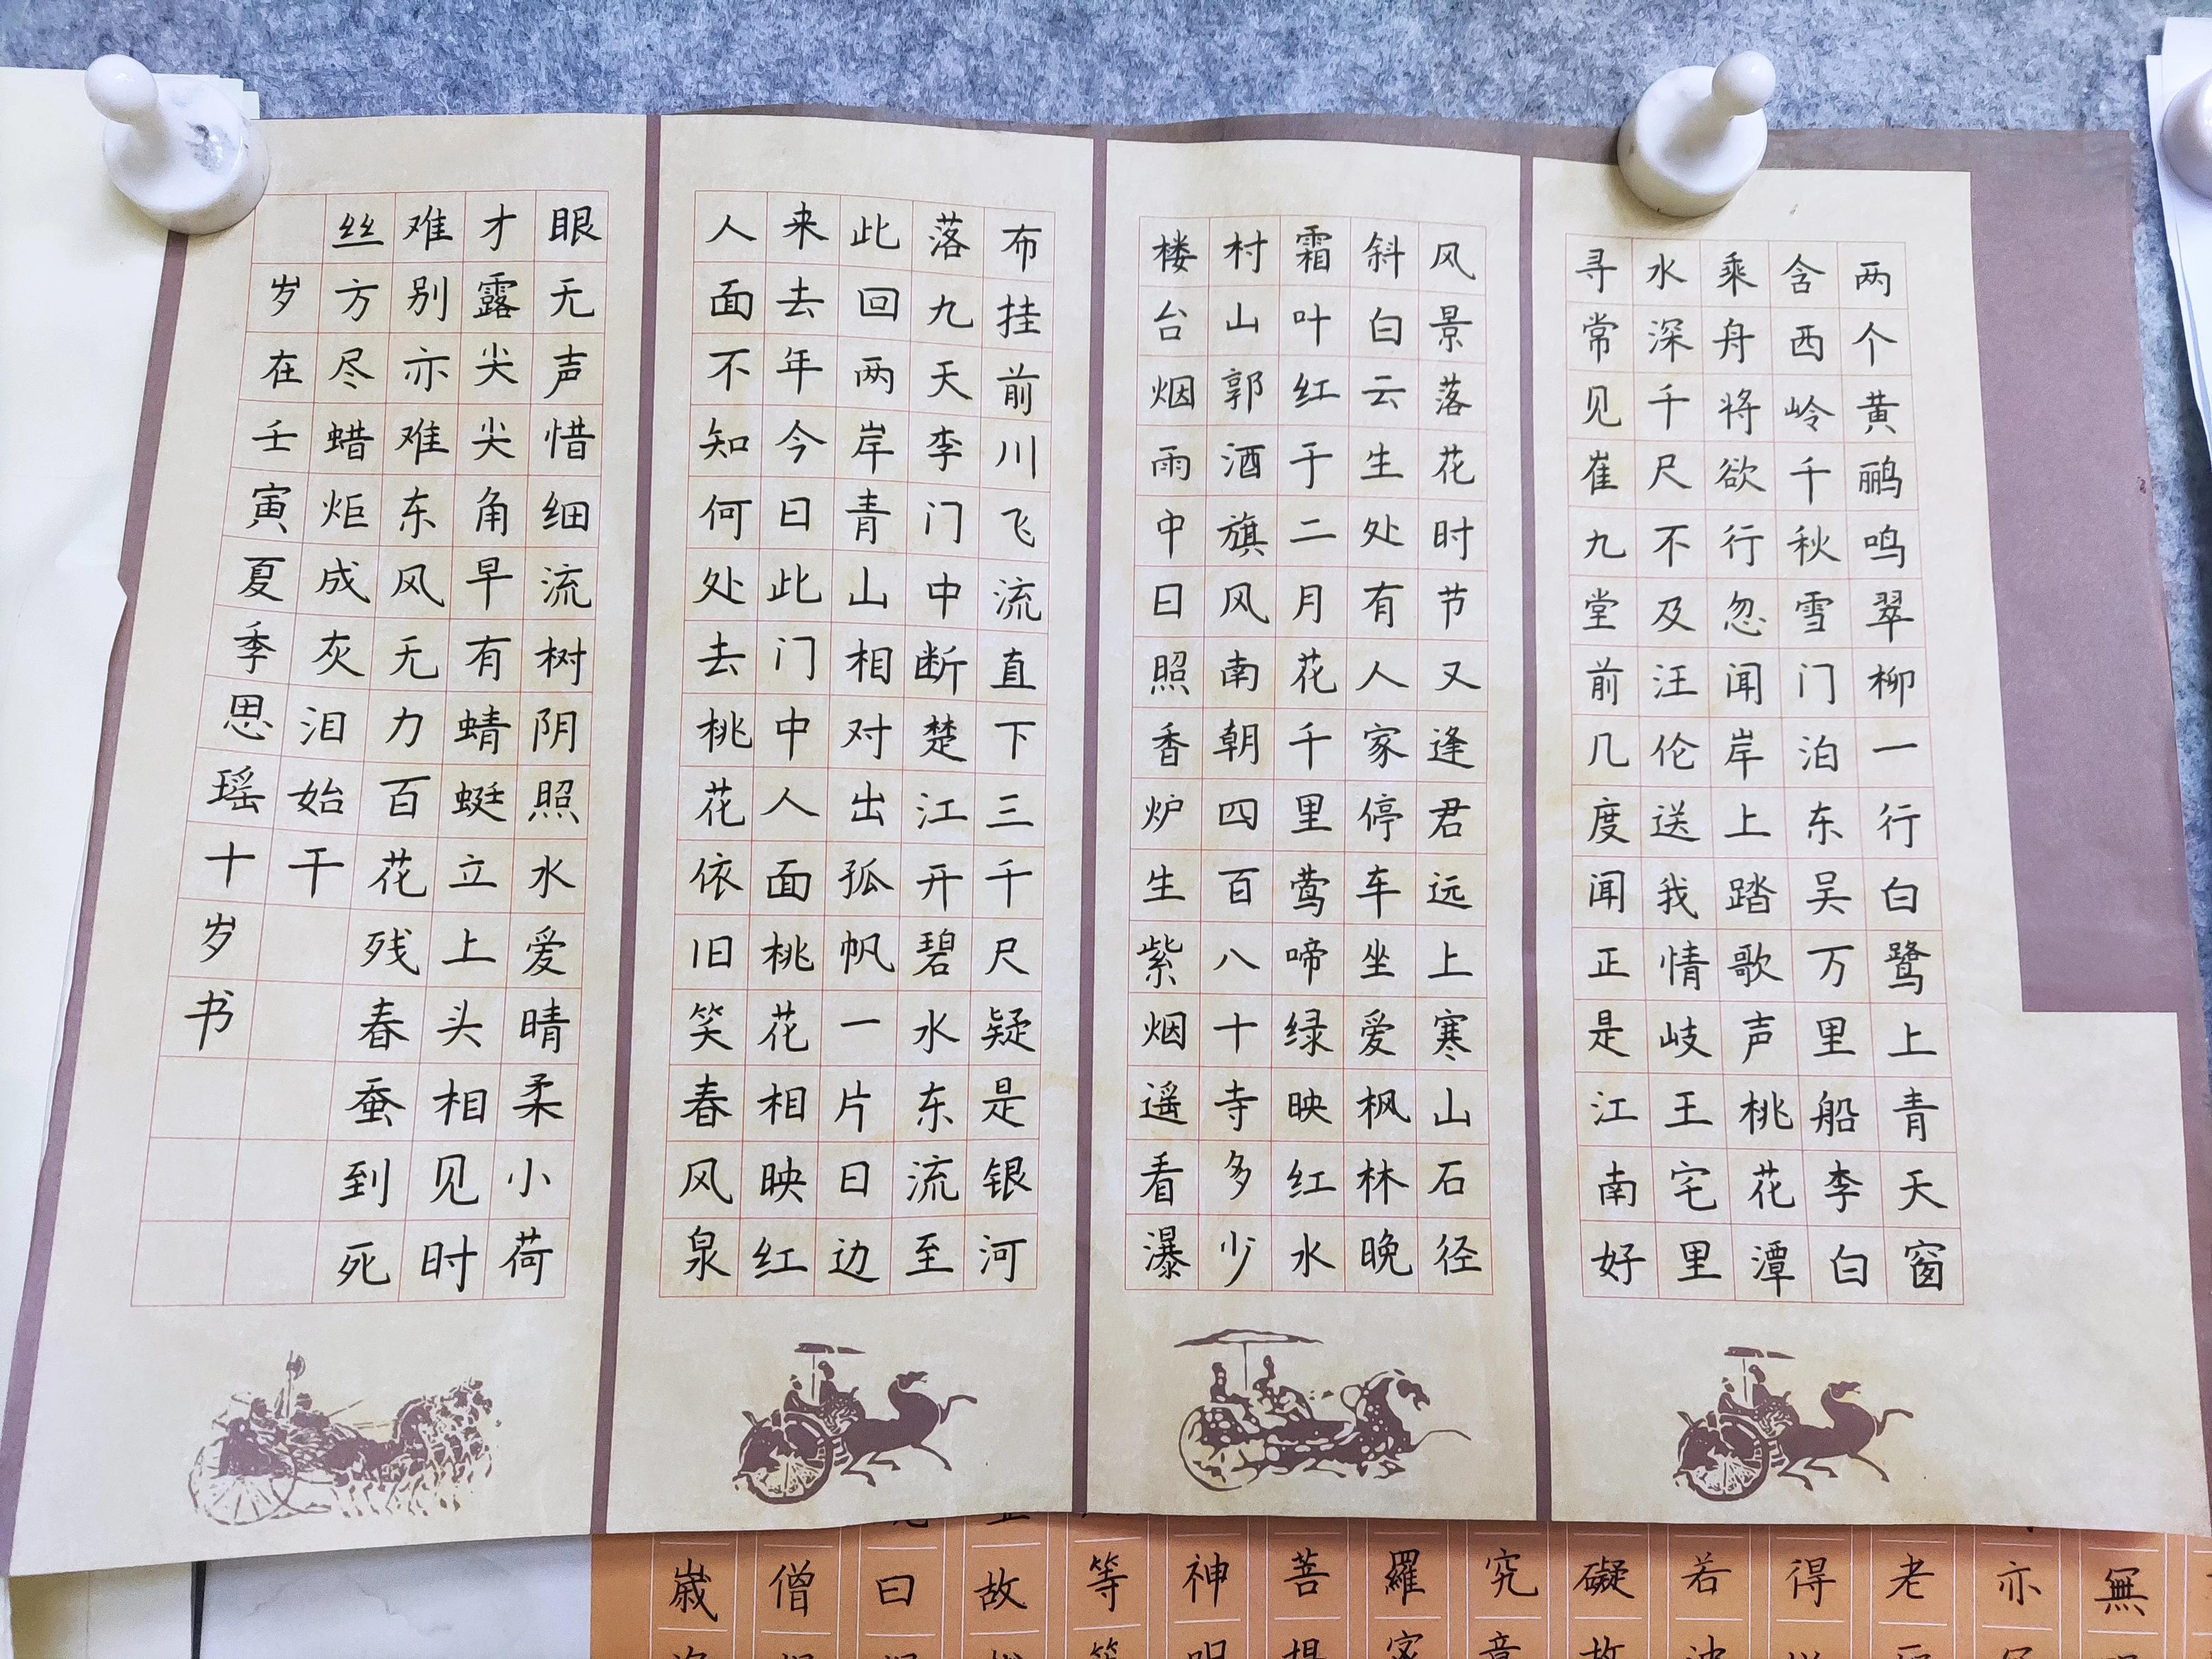 两个黄鹂鸣翠柳一行白鹭上青天窗
含西岭千秋雪门泊东吴万里船李白
乘舟将欲行忽闻岸上踏歌声桃花潭
水深千尺不及汪伦送我情岐王宅里
寻常见崔九堂前几度闻正是江南好
风景落花时节又逢君远上寒山石径
斜白云生处有人家停车坐爱枫林晚
霜叶红于二月花千里莺啼绿映红水
村山郭酒旗风南朝四百八十寺多少
楼台烟雨中日照香炉生紫烟遥看瀑
布挂前川飞流直下三千尺疑是银河
落九天李门中断楚江开碧水东流至
此回两岸青山相对出孤帆一片日边
来去年今日此门中人面桃花相映红
人面不知何处去桃花依旧笑春风泉
眼无声惜细流树阴照水爱晴柔小荷
才露尖尖角早有蜻蜓立上头相见时
难别亦难东风无力百花残春蚕到死
丝方尽蜡炬成灰泪始干
岁在壬寅夏季思瑶十岁书
無
亦
老
得
若
礙
究
羅
菩
神
等
故
曰
僧
嵗